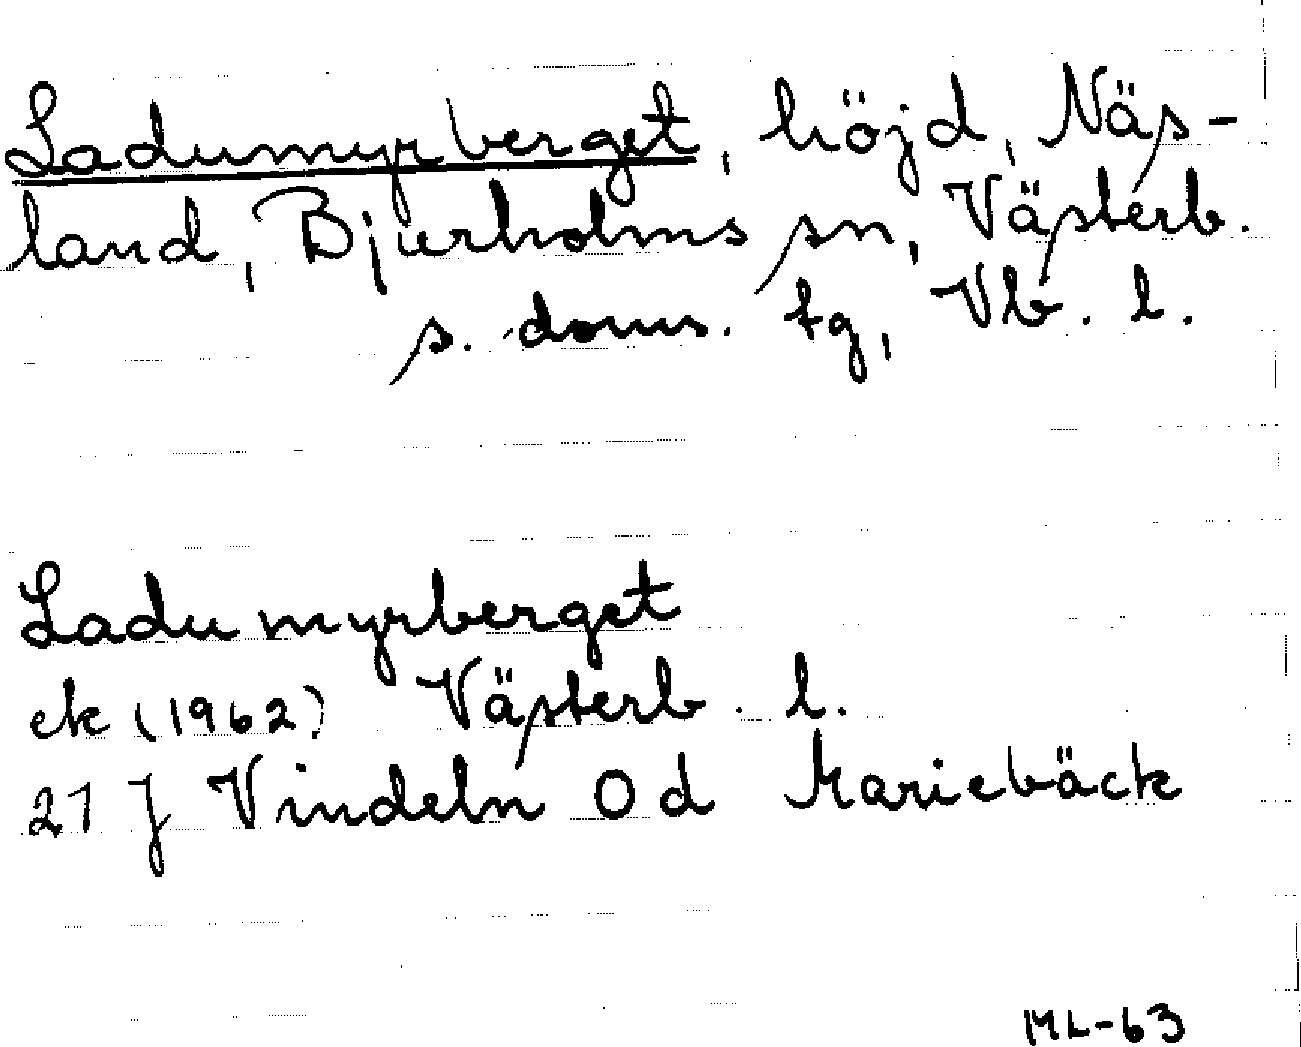 Ladumyrberget, höjd, Näs-
land, Bjurholms sn, Västerb.
s. doms. tg, Vb. l.
Ladumyrberget
ek (1962) Västerb. l.
21 J Vindeln 0d Mariebäck
ML-63